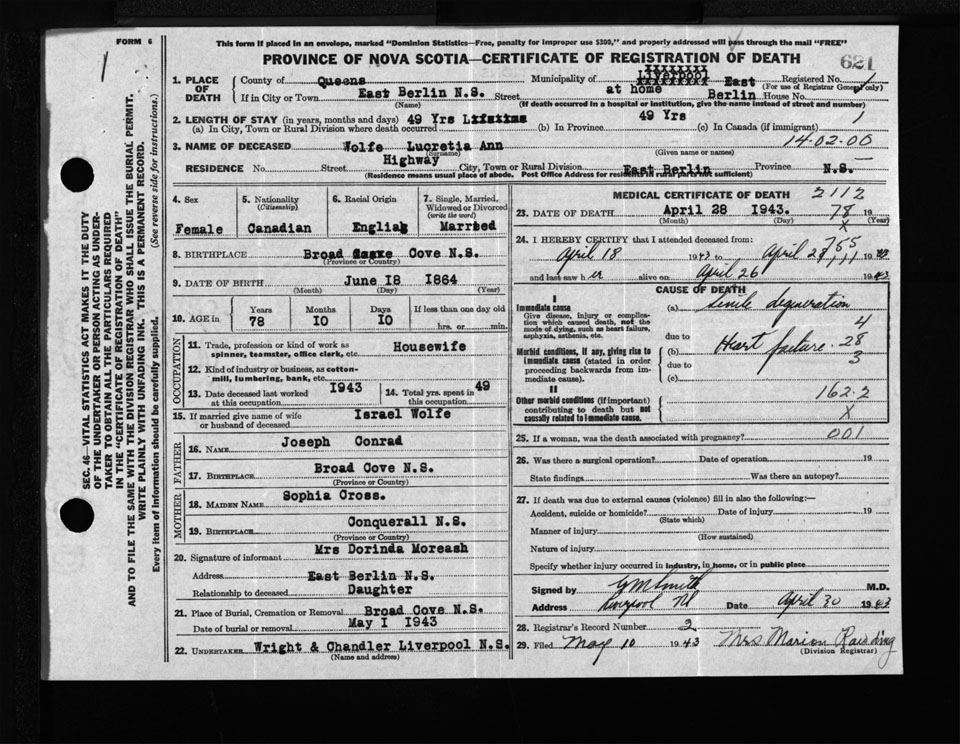 FORM 6
This form if placed in an envelope, marked "Dominion Statistics—Free, penalty for improper use $300," and properly addressed will pass through the mail "FREE"
1
621
PROVINCE OF NOVA SCOTIA—CERTIFICATE OF REGISTRATION OF DEATH
SEC. 46—VITAL STATISTICS ACT MAKES IT THE DUTY
OF THE UNDERTAKER OR PERSON ACTING AS UNDER-
TAKER TO OBTAIN ALL THE PARTICULARS REQUIRED
IN THE "CERTIFICATE OF REGISTRATION OF DEATH"
AND TO FILE THE SAME WITH THE DIVISION REGISTRAR WHO SHALL ISSUE THE BURIAL PERMIT.
WRITE PLAINLY WITH UNFADING INK. THIS IS A PERMANENT RECORD.
Every item of information should be carefully supplied. (See reverse side for instructions.)
1. PLACE OF DEATH
County of Queens Municipality of Liverpool East Registered No. 1
(For use of Registrar General only)
If in City or Town East Berlin N.S. Street at home Berlin House No.
(Name) (If death occurred in a hospital or institution, give the name instead of street and number)
2. LENGTH OF STAY (in years, months and days) 49 Yrs Lifetime 49 Yrs 1
(a) In City, Town or Rural Division where death occurred (b) In Province (c) In Canada (if immigrant)
14-02-00
3. NAME OF DECEASED Wolfe Lucretia Ann
(Surname) (Given name or names)
RESIDENCE No. Street Highway City, Town or Rural Division East Berlin Province N.S.
(Residence means usual place of abode. Post Office Address for residents in rural parts not sufficient)
4. Sex
Female
5. Nationality
(Citizenship)
Canadian
6. Racial Origin
English
7. Single, Married, Widowed or Divorced
(write the word)
Married
8. BIRTHPLACE Broad Cove N.S.
(Province or Country)
9. DATE OF BIRTH June I8 1864
(Month) (Day) (Year)
10. AGE in
Years Months Days If less than one day old
78 IO IO hrs. or min.
OCCUPATION
11. Trade, profession or kind of work as spinner, teamster, office clerk, etc. Housewife
12. Kind of industry or business, as cotton-mill, lumbering, bank, etc.
13. Date deceased last worked at this occupation 1943
14. Total yrs. spent in this occupation 49
15. If married give name of wife or husband of deceased Israel Wolfe
FATHER
16. NAME Joseph Conrad
17. BIRTHPLACE Broad Cove N.S.
(Province or Country)
MOTHER
18. MAIDEN NAME Sophia Cross.
19. BIRTHPLACE Conquerall N.S.
(Province or Country)
20. Signature of informant Mrs Dorinda Moreash
Address East Berlin N.S.
Relationship to deceased Daughter
21. Place of Burial, Cremation or Removal Broad Cove N.S.
Date of burial or removal May I 1943
22. UNDERTAKER Wright & Chandler Liverpool N.S.
(Name and address)
MEDICAL CERTIFICATE OF DEATH 2112
23. DATE OF DEATH April 28 1943. 78 19
(Month) (Day) (Year)
X
24. I HEREBY CERTIFY that I attended deceased from: 755
April 18 1943 to April 27 1943
and last saw her alive on April 26 1943
CAUSE OF DEATH
I
Immediate cause
Give disease, injury or complication which caused death, not the mode of dying, such as heart failure, asphyxia, asthenia, etc.
(a) Senile degeneration
4
due to
Morbid conditions, if any, giving rise to immediate cause (stated in order proceeding backwards from immediate cause).
(b) Heart failure. 28
due to 3
(c)
II
Other morbid conditions (if important) contributing to death but not causally related to immediate cause.
162-2
X
25. If a woman, was the death associated with pregnancy? 001
26. Was there a surgical operation? Date of operation 19
State findings Was there an autopsy?
27. If death was due to external causes (violence) fill in also the following:—
Accident, suicide or homicide? Date of injury 19
(State which)
Manner of injury
(How sustained)
Nature of injury
Specify whether injury occurred in industry, in home, or in public place
Signed by Smith M.D.
Address Liverpool NS Date April 30 1943
28. Registrar's Record Number 2
29. Filed May 10 1943 Mrs Marion
(Division Registrar)